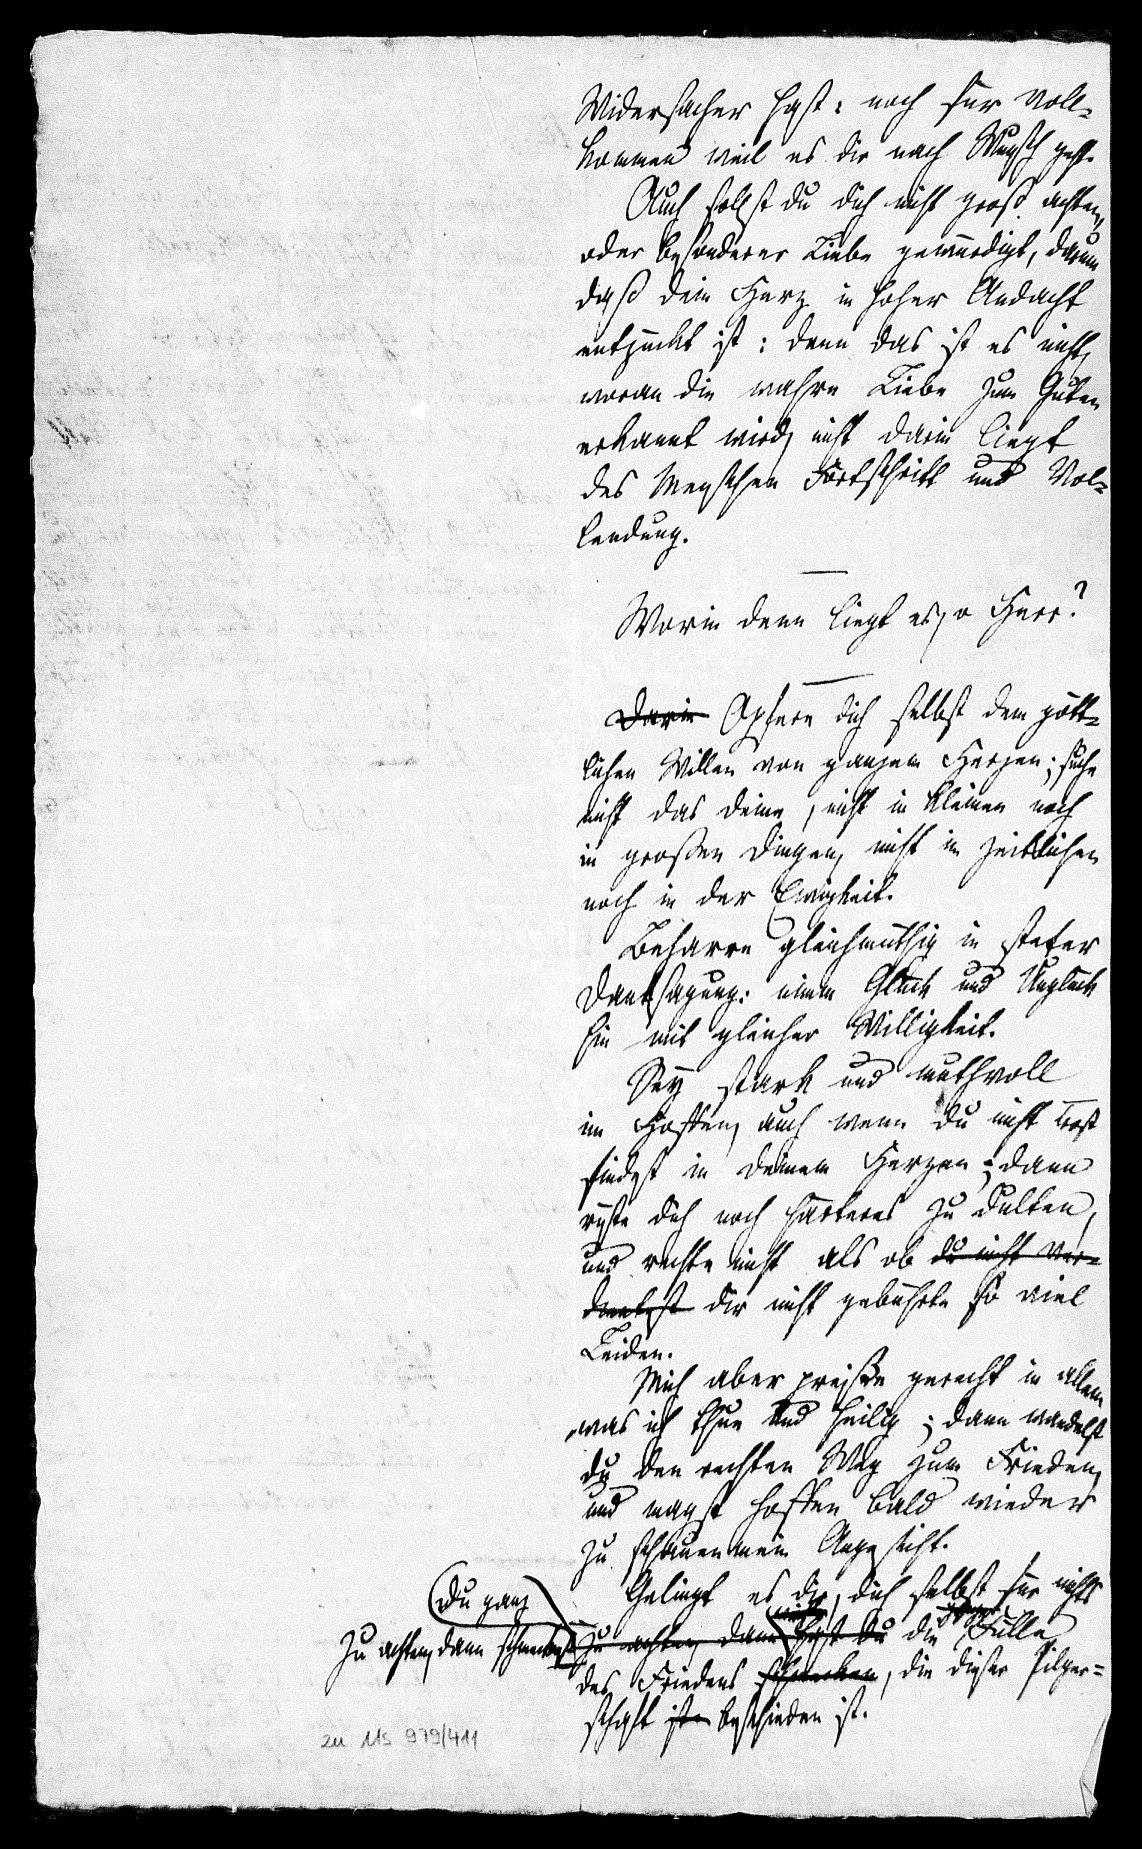 Widersacher hast: noch für voll-
kommen weil es dir nach Wunsch geht.
Auch sollst du dich nicht groß achten,
oder besonderer Liebe gewürdigt, darum
daß dein Herz in hoher Andacht
entzückt ist: denn das ist es nicht,
woran die wahre Liebe zum Guten
erkannt wird, nicht darin liegt
des Menschen Fortschritt und Vol-
lendung.
Worin denn liegt es, o Herr?
Darin Opfere dich selbst dem gött-
lichen Willen von ganzem Herzen; suche
nicht das deine, nicht in kleinen noch
in großen Dingen, nicht im zeitlichen
noch in der Ewigkeit.
Beharre gleichmüthig in steter
Danksagung: nimm Glück und Unglück
hin mit gleicher Willigkeit.
Sey stark und muthvoll
im Hoffen, auch wenn du nicht Trost
findest in deinem Herzen; dann
rüste dich noch härteres zu dulten,
und rechte nicht als ob du nicht ver-
dientest dir nicht gebührte so viel
Leiden.
Mich aber preise gerecht in allem
was ich thue und heilig; dann wandelst
du den rechten Weg zum Frieden,
und magst hoffen bald wieder
zu schauen mein Angesicht.
Gelingt es dir, dich selbst für nichts
du ganz
zu achten, dann schmeckest zu achten, dann hast du die Fülle
des Friedens schmecken, die dieser Pilger-
schaft ist beschieden ist.
zu Ms 979/411